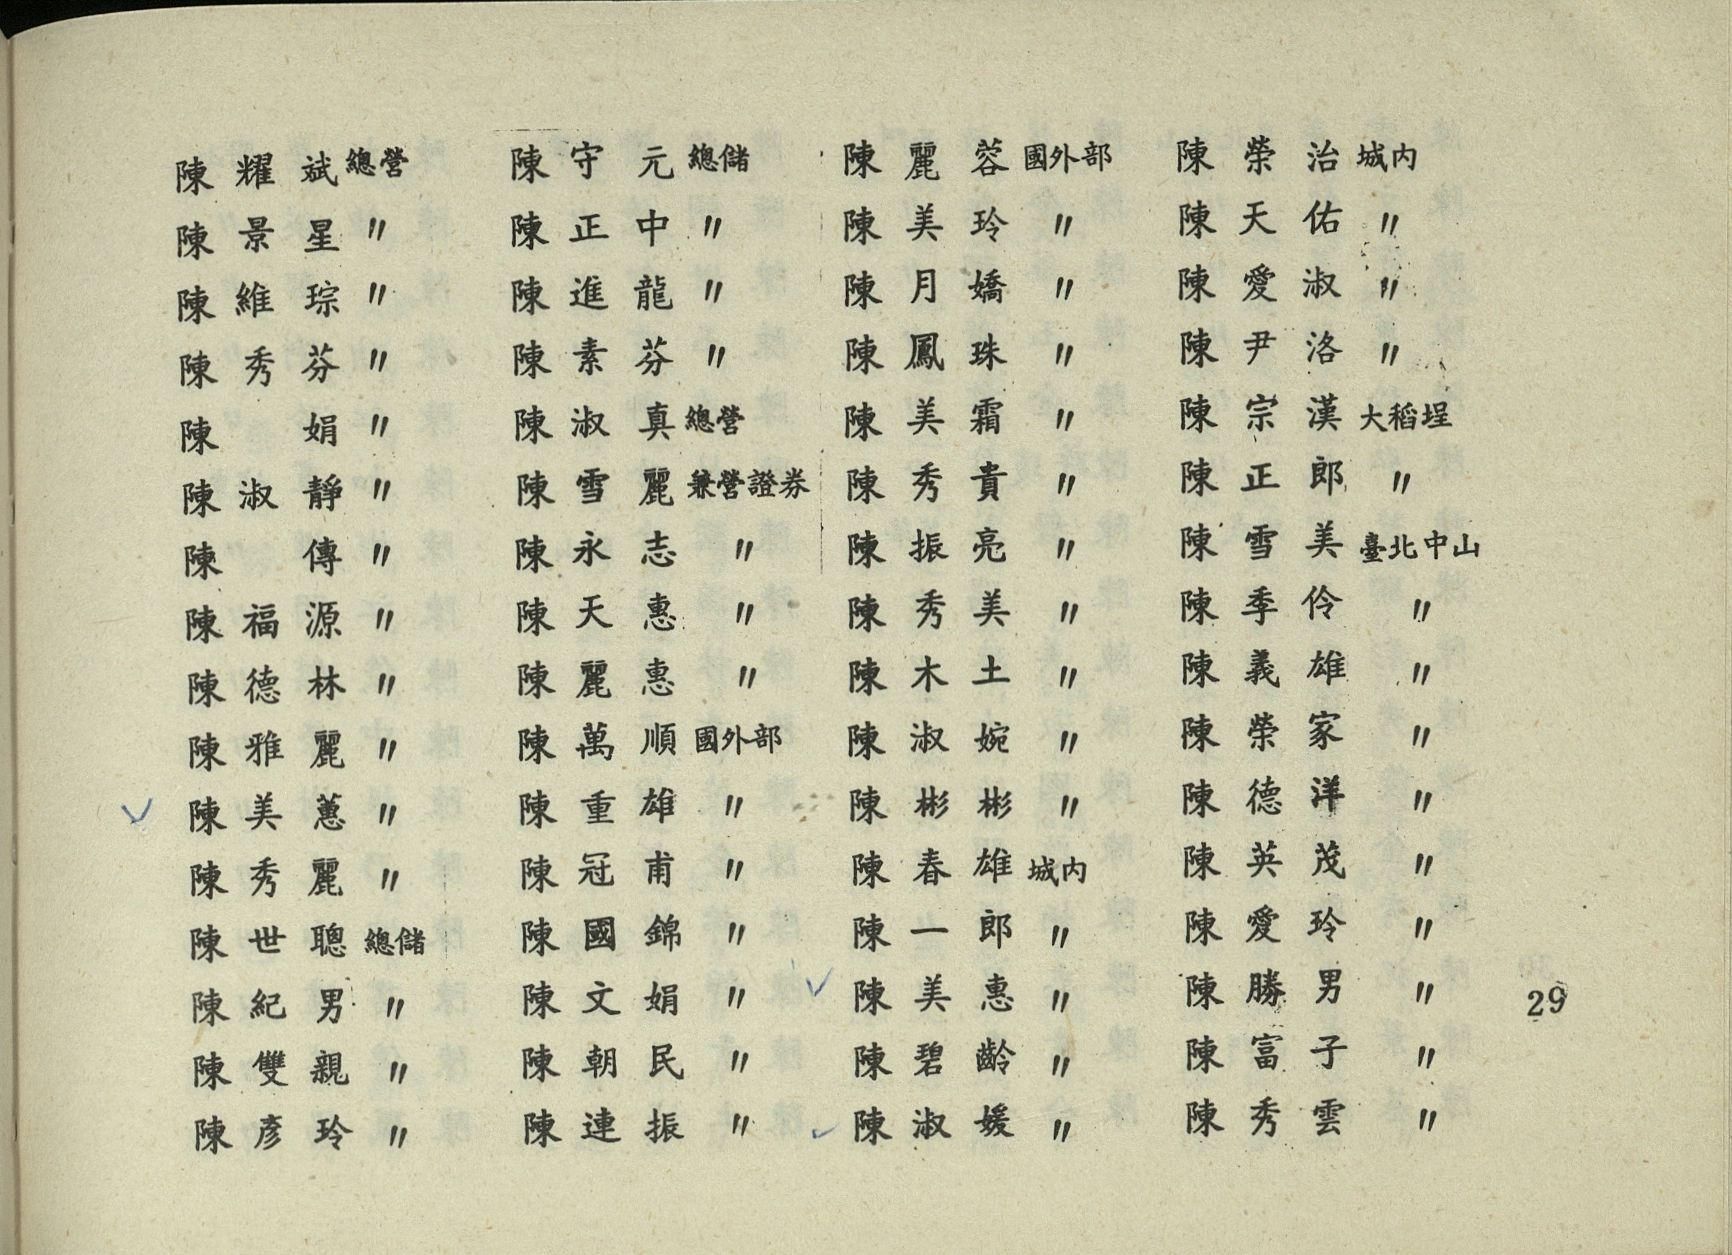 陳耀斌 總營
陳景星 〃
陳維琮 〃
陳秀芬 〃
陳　娟 〃
陳淑靜 〃
陳　傳 〃
陳福源 〃
陳德林 〃
陳雅麗 〃
陳美蕙 〃
陳秀麗 〃
陳世聰 總儲
陳紀男 〃
陳雙親 〃
陳彥玲 〃
陳守元 總儲
陳正中 〃
陳進龍 〃
陳素芬 〃
陳淑真 總營
陳雪麗 兼營證券
陳永志 〃
陳天惠 〃
陳麗惠 〃
陳萬順 國外部
陳重雄 〃
陳冠甫 〃
陳國錦 〃
陳文娟 〃
陳朝民 〃
陳連振 〃
陳麗蓉 國外部
陳美玲 〃
陳月嬌 〃
陳鳳珠 〃
陳美霜 〃
陳秀貴 〃
陳振亮 〃
陳秀美 〃
陳木土 〃
陳淑婉 〃
陳彬彬 〃
陳春雄 城内
陳一郎 〃
陳美惠 〃
陳碧齡 〃
陳淑媛 〃
陳榮治 城内
陳天佑 〃
陳愛淑 〃
陳尹洛 〃
陳宗漢 大稻埕
陳正郎 〃
陳雪美 臺北中山
陳季伶 〃
陳義雄 〃
陳榮家 〃
陳德洋 〃
陳英茂 〃
陳愛玲 〃
陳勝男 〃
陳富子 〃
陳秀雲 〃
29